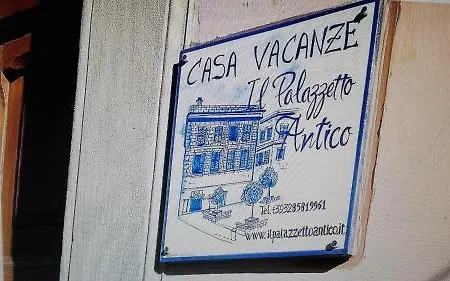 CASA VACANZE
Il Palazzetto
Antico
Tel. +393285819961
www.ilpalazzettoantico.it